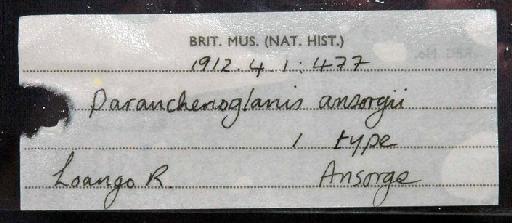 BRIT. MUS. (NAT. HIST.)
1912.4.1:477
Parauchenoglanis ansorgii
1 type
Loango R. Ansorge